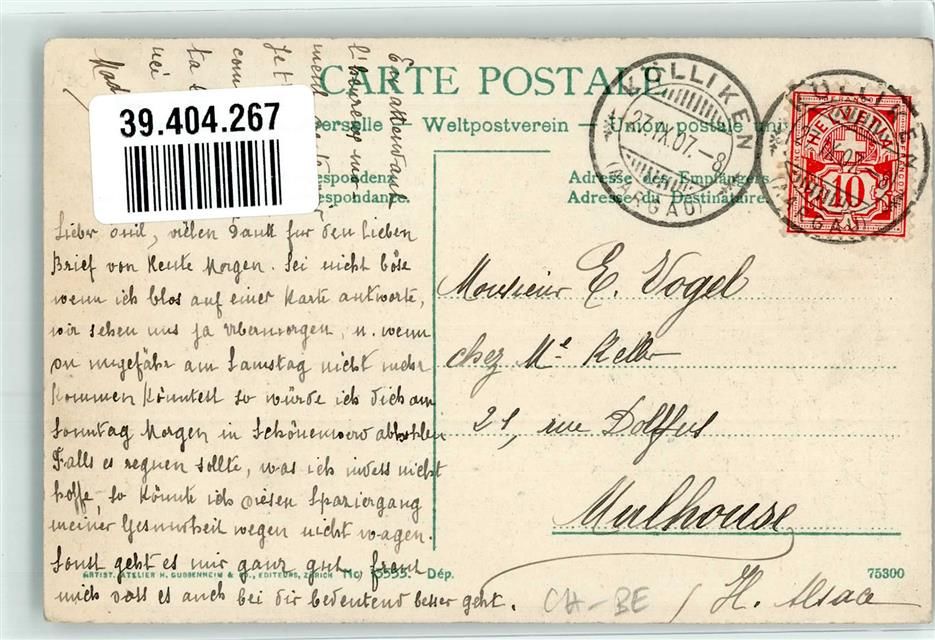 CARTE POSTALE
Weltpostverein — Union postale
39.404.267
Adresse des Empfängers.
Adresse du Destinataire.
KÖLLIKEN
27.IX.07.–8
(AARGAU)
HELVETIA
10
Lieber Emil, vielen Dank für den lieben
Brief von heute Morgen. Sei nicht böse
wenn ich blos auf einer Karte antworte,
wir sehen uns ja übermorgen, u. wenn
du ungefähr am Samstag nicht mehr
kommen könntest so würde ich dich am
Sonntag Morgen in Schönenwerd abholen
Falls es regnen sollte, was ich indess nicht
hoffe, so könnte ich diesen Spaziergang
meiner Gesundheit wegen nicht wagen.
Sonst geht es mir ganz gut, freut
mich dass es auch bei dir bedeutend besser geht.
En attendant
Monsieur E. Vogel
chez Me Keller
21, rue Dollfus
Mulhouse
H. Alsace
ARTIST. ATELIER H. GUGGENHEIM & Co., EDITEURS, ZÜRICH No. Dép.
75300
CH-BE